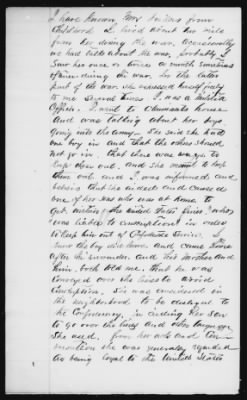 I have known Mrs Faires from
Childhood. I lived about one mile
from her during the war. Occasionally
we had talks about the war, probably I
Saw her once or twice a month sometimes
oftener during the war. In the latter
part of the war she expressed herself freely
to me Several times. I was a
Officer. I went to Clements house
And was talking about her boys
Going into the army. She said she had
one boy in and that the others should
not go in, that there was ways to
keep them out, and she meant to keep
them out, and I was informed and
believe that she aided and caused
one of her sons who was at home to
Get within the United States lines, who
was liable to conscription in order
to keep him out of Confederate Service. I
Saw the boy
after the surrender, And his Mother And
him both told me, that he was
Conveyed over the lines to avoid
Conscription. She was considered in
the neighborhood to be disloyal to
the Confederacy, in aiding her son
to go over the lines and other language
She used, from her acts and Con-
versation she was generally regarded
As being loyal to the United States